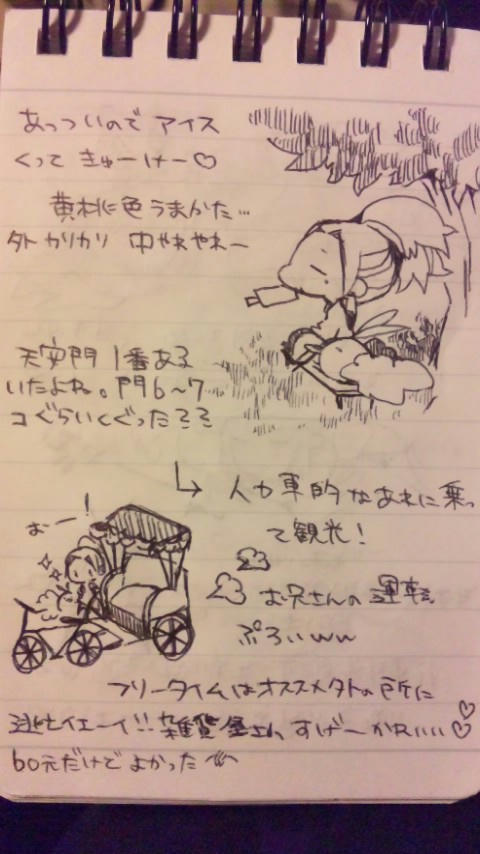 あっついので アイス
くって きゅーけー♡
黄桃に色うまかた…
外カリカリ 中やわやわー
天安門 1番ある
いたよね。門6〜7
コぐらいくぐった
↳ 人力車的なあれに乗っ
て観光!
おー!
お兄さんの運転
ぷろいww
フリータイムはオススメ外の所に
イエーイ!! 雑貨屋さん すげーかわいい♡
60元だけでよかった